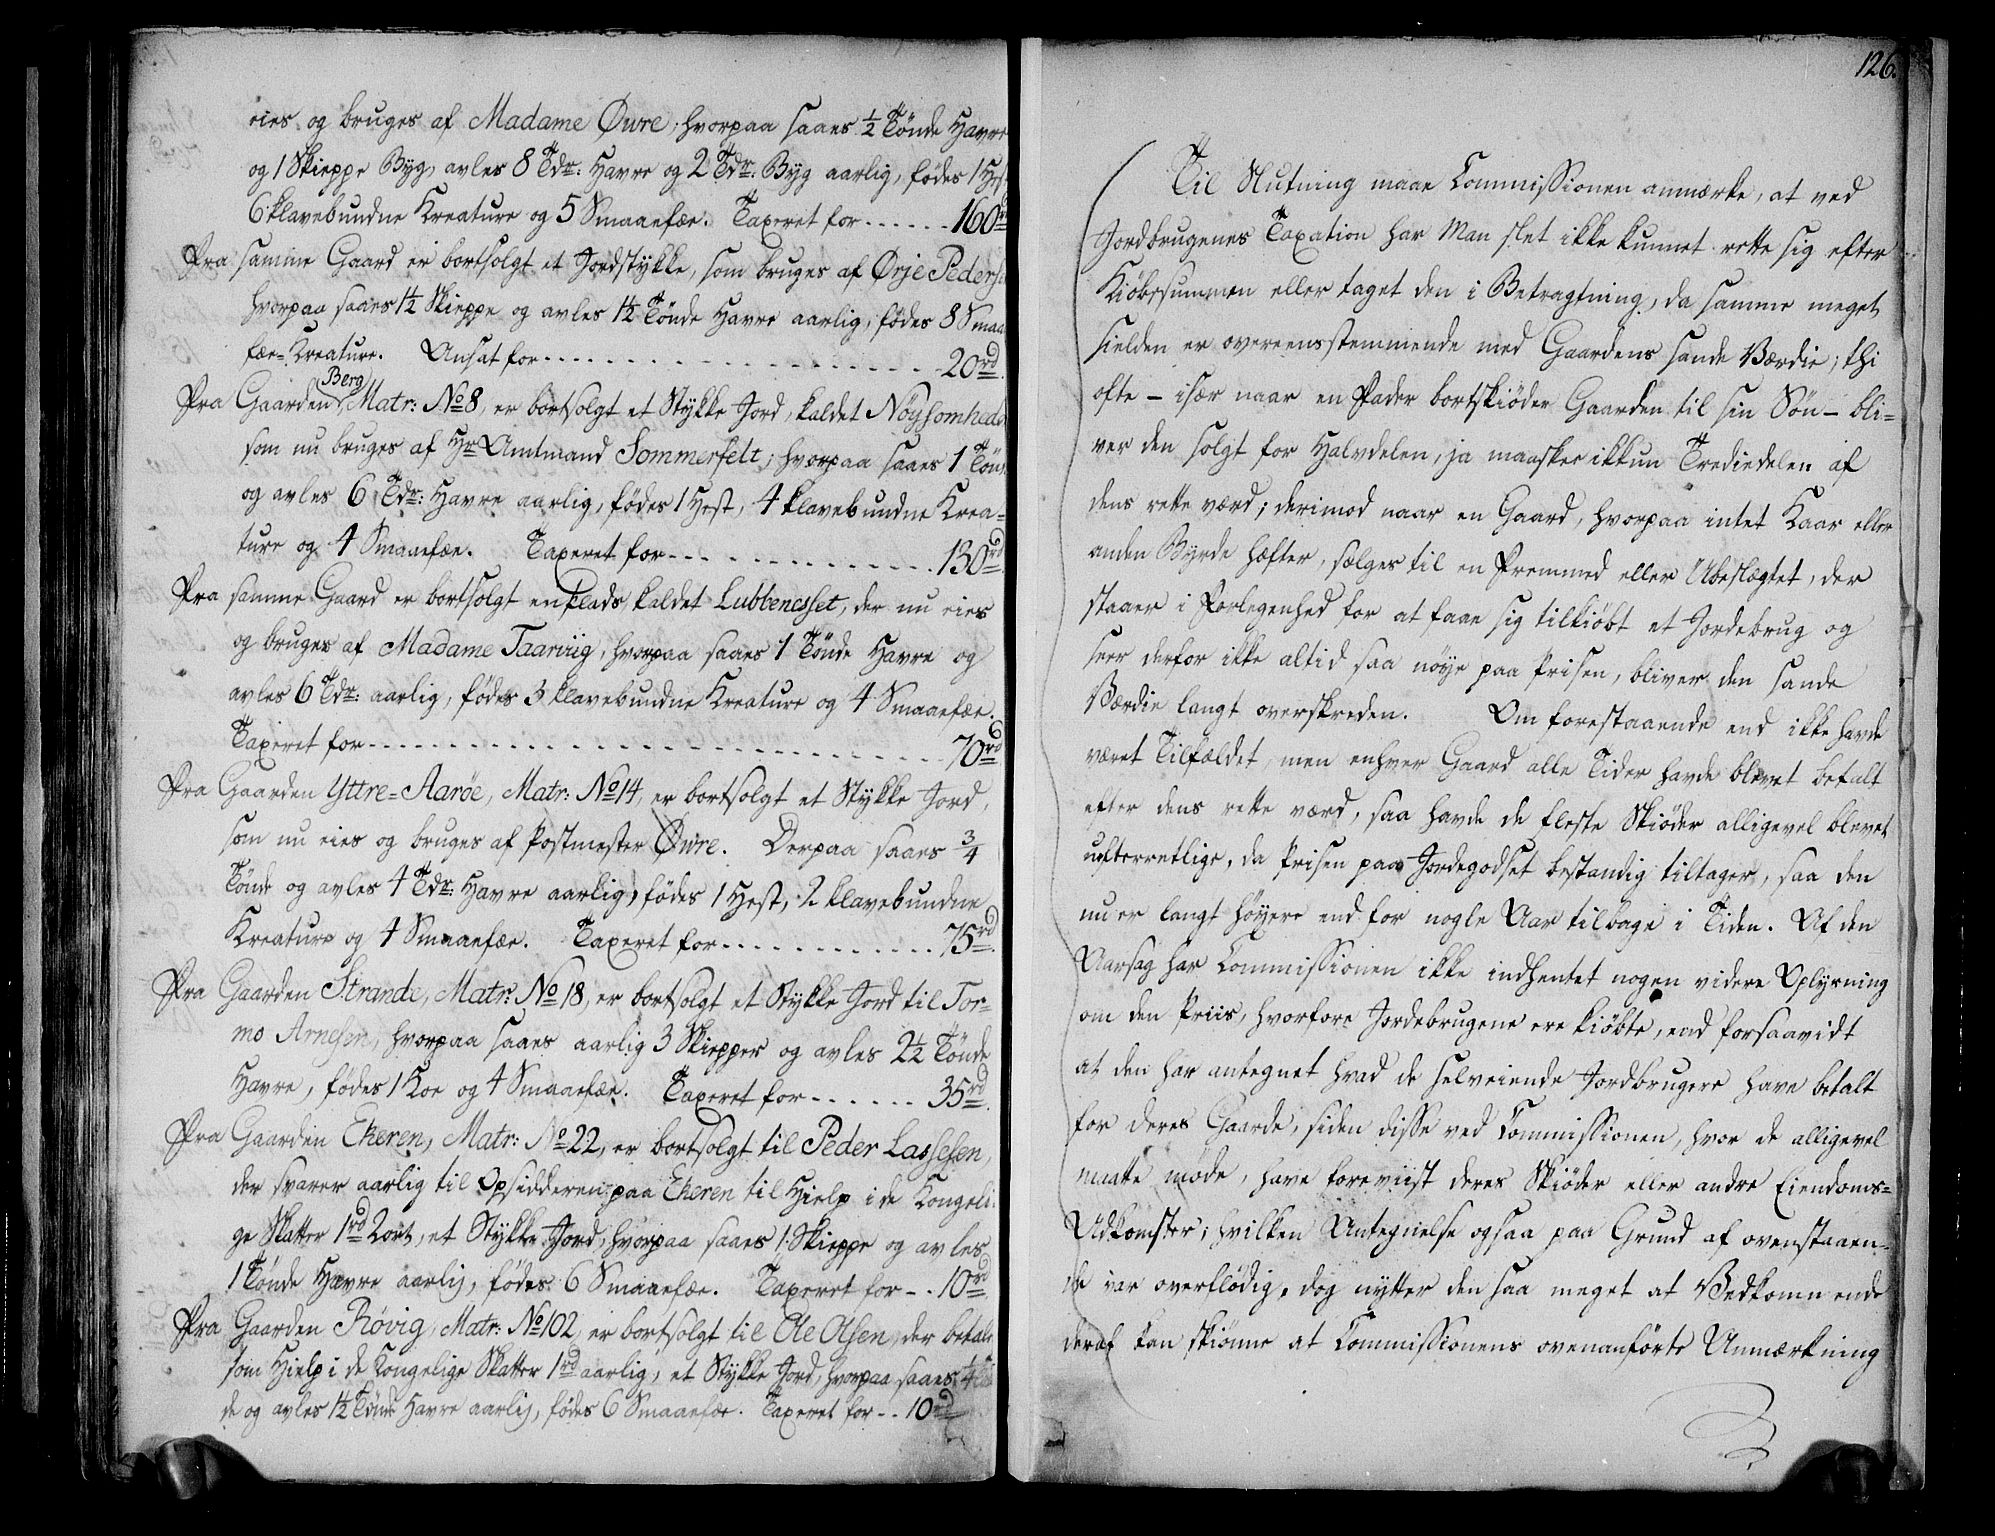 eies og bruges af Madame Øwre, hvorpaa saaes ½ Tönde Havre
og 1 Skieppe Byg, avles 8 Tdr: Havre og 2 Tdr: Byg aarlig, födes 1 Hest
6 klavebundne Kreature og 5 Smaaefæe. Taxeret for ------ 160 rd
Fra samme Gaard er bortsolgt et Jordstykke, som bruges af Ørje Peders
hvorpaa saaes 1½ Skieppe og avles 1½ Tönde Havre aarlig, födes 8 Smaa
fæe=Kreature. Ansat for ------ 20 rd.
Fra Gaarden Berg, Matr: No 8, er bortsolgt et Stykke Jord, kaldet Nöysomhed
som nu bruges af Hr Amtmand Sommerfelt; hvorpaa saaes 1 Tön
og avles 6 Tdr: Havre aarlig, födes 1 Hest, 4 klavebundne Krea=
ture og 4 Smaaefæe. Taxeret for ------ 130 rd
Fra samme Gaard er bortsolgt en Plads, kaldet Lubbenesset, der nu eies
og bruges af Madame Taarviig, hvorpaa saaes 1 Tönde Havre og
avles 6 Tdr: aarlig, födes 3 klavebundne Kreature og 4 Smaaefæe.
Taxeret for ------ 70 rd
Fra Gaarden Yttre=Aaröe, Matr: No 14, er bortsolgt et Stykke Jord,
som nu eies og bruges af Postmester Øwre. Derpaa saaes ¾
Tönde og avles 4 Tdr: Havre aarlig, födes 1 Hest, 2 klavebundne
Kreature og 4 Smaaefæe. Taxeret for ------ 75 rd.
Fra Gaarden Strande, Matr: No 18, er bortsolgt et Stykke Jord til Tor=
mo Arnesen, hvorpaa saaes aarlig 3 Skiepper og avles 2½ Tönde
Havre, födes 1 Koe og 4 Smaaefæe. Taxeret for ------ 35 rd.
Fra Gaarden Ekeren, Matr: No 22, er bortsolgt til Peder Lassesen,
der svarer aarlig til Opsidderen paa Ekeren til Hielp i de Kongeli
ge Skatter 1 rd 2 ort, et Stykke Jord, hvorpaa saaes 1 Skieppe og avles
1 Tönde Havre aarlig, födes 6 Smaaefæe. Taxeret for -- 10 rd
Fra Gaarden Rövig, Matr: No 102, er bortsolgt til Ole Olsen, der betale
som Hielp i de Kongelige Skatter 1 rd aarlig, et Stykke Jord, hvorpaa saaes ¼
de og avles 1½ Tönde Havre aarlig, födes 6 Smaaefæe. Taxeret for -- 10 rd
126.
Til Slutning maae Commissionen anmærke, at ved
Jordbrugenes Taxation har Man slet ikke kunnet rette sig efter
Kiöbesummen eller taget den i Betragtning, da samme meget
sielden er overeensstemmende med Gaardens sande Værdie; thi
ofte - især naar en Fader bortskiöder Gaarden til sin Sön - bli=
ver den solgt for Halvdelen, ja maaskee ikkun Trediedelen af
dens rette værd; derimod naar en Gaard, hvorpaa intet Kaar eller
anden Byrde hæfter, sælges til en Fremmed eller Ubeslægtet, der
staaer i Forlegenhed for at faae sig tilkiöbt et Jordebrug og
seer derfor ikke altid saa nöye paa Prisen, bliver den sande
Værdie langt overskreden. Om forestaaende end ikke havde
været Tilfældet, men enhver Gaard alle Tider havde blevet betalt
efter dens rette værd, saa havde de fleste Skiöder alligevel blevet
uefterretlige, da Prisen paa Jordegodset bestandig tiltager, saa den
nu er langt höyere end for nogle Aar tilbage i Tiden. Af den
Aarsag har Commissionen ikke indhentet nogen videre Oplysning
om den Priis, hvorfore Jordebrugene ere kiöbte, end forsaavidt
at den har antegnet hvad de selveiende Jordbrugere have betalt
for deres Gaarde, siden disse ved Commissionen, hvor de alligevel
maatte möde, have foreviist deres Skiöder eller andre Eiendoms=
Adkomster; hvilken Antegnelse ogsaa paa Grund af ovenstaaen=
de var overflödig, dog nytter den saa meget at Vedkommende
deraf kan skiönne at Commissionens ovenanförte Anmærkning